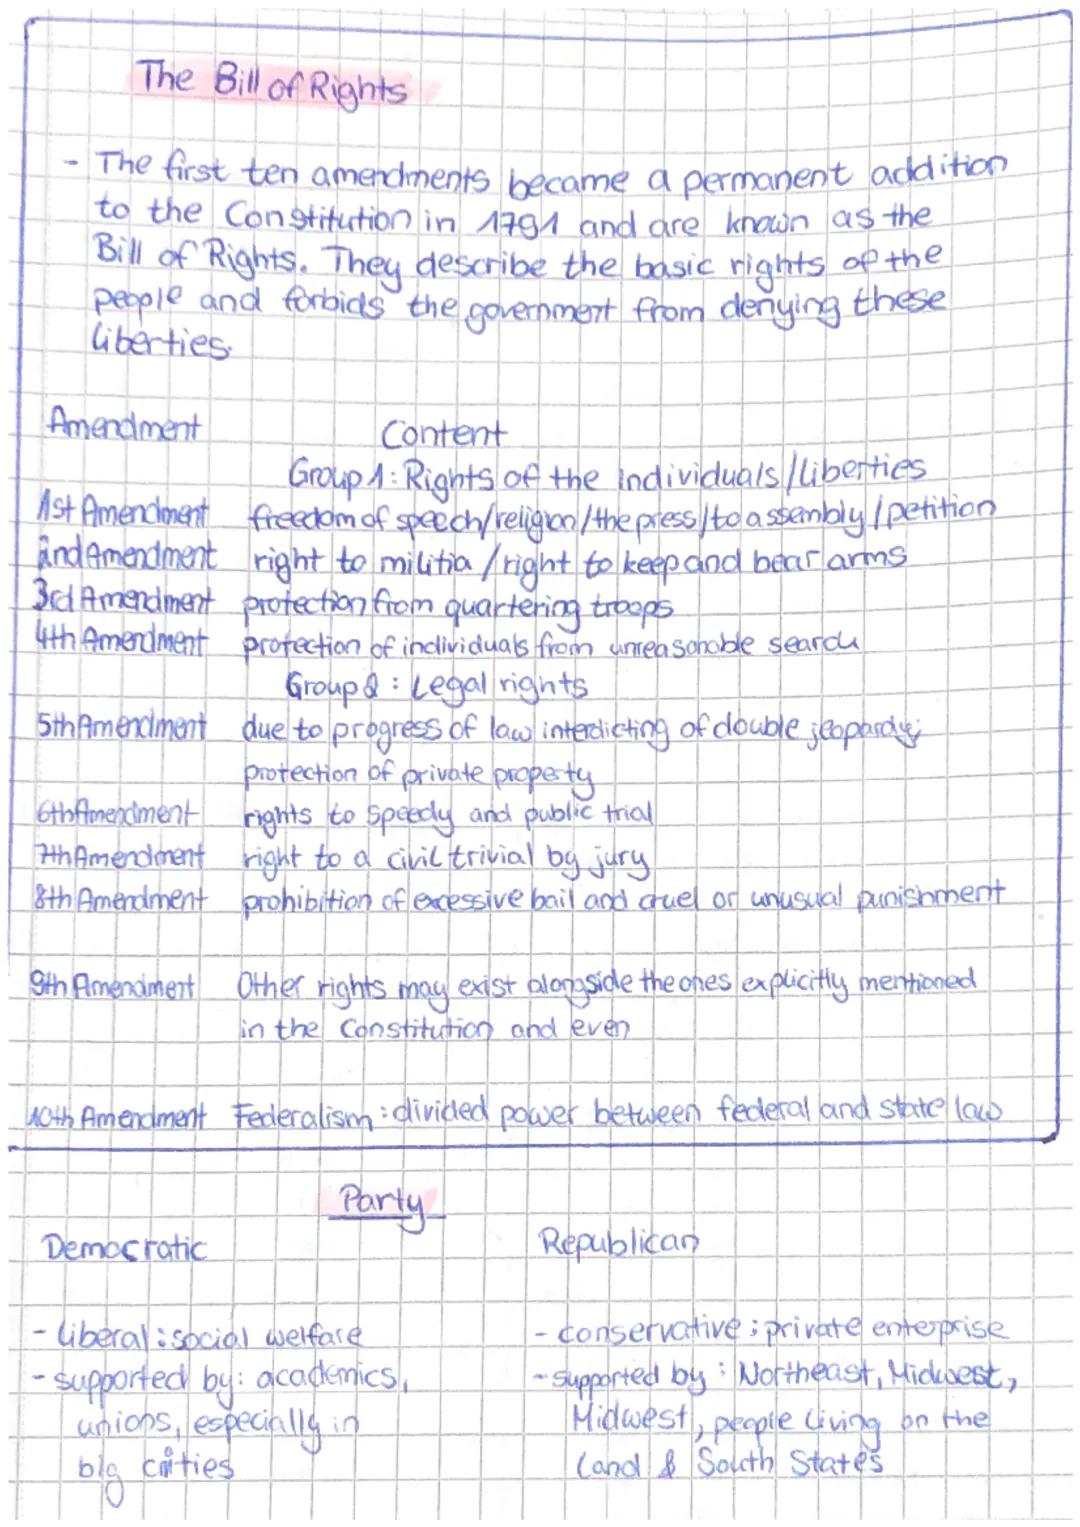 The Bill of Rights
- The first ten amendments became a permanent addition
to the Constitution in 1791 and are known as the
Bill of Rights. They describe the basic rights of the
people and forbids the government from denying these
liberties.
Amendment Content
Group 1: Rights of the Individuals/liberties
1st Amendment freedom of speech/religion/the press/to assembly/petition
2nd Amendment right to militia / right to keep and bear arms
3rd Amendment protection from quartering troops
4th Amendment protection of individuals from unreasonable search
Group 2: Legal rights
5th Amendment due to progress of law interdicting of double jeopardy;
protection of private property
6th Amendment rights to speedy and public trial
7th Amendment right to a civil trivial by jury
8th Amendment prohibition of excessive bail and cruel or unusual punishment
9th Amendment Other rights may exist alongside the ones explicitly mentioned
in the Constitution and even
10th Amendment Federalism: divided power between federal and state law
Party
Democratic Republican
- liberal: social welfare - conservative; private enterprise
- supported by: academics, - supported by: Northeast, Midwest,
unions, especially in Midwest, people living on the
big cities land & South States